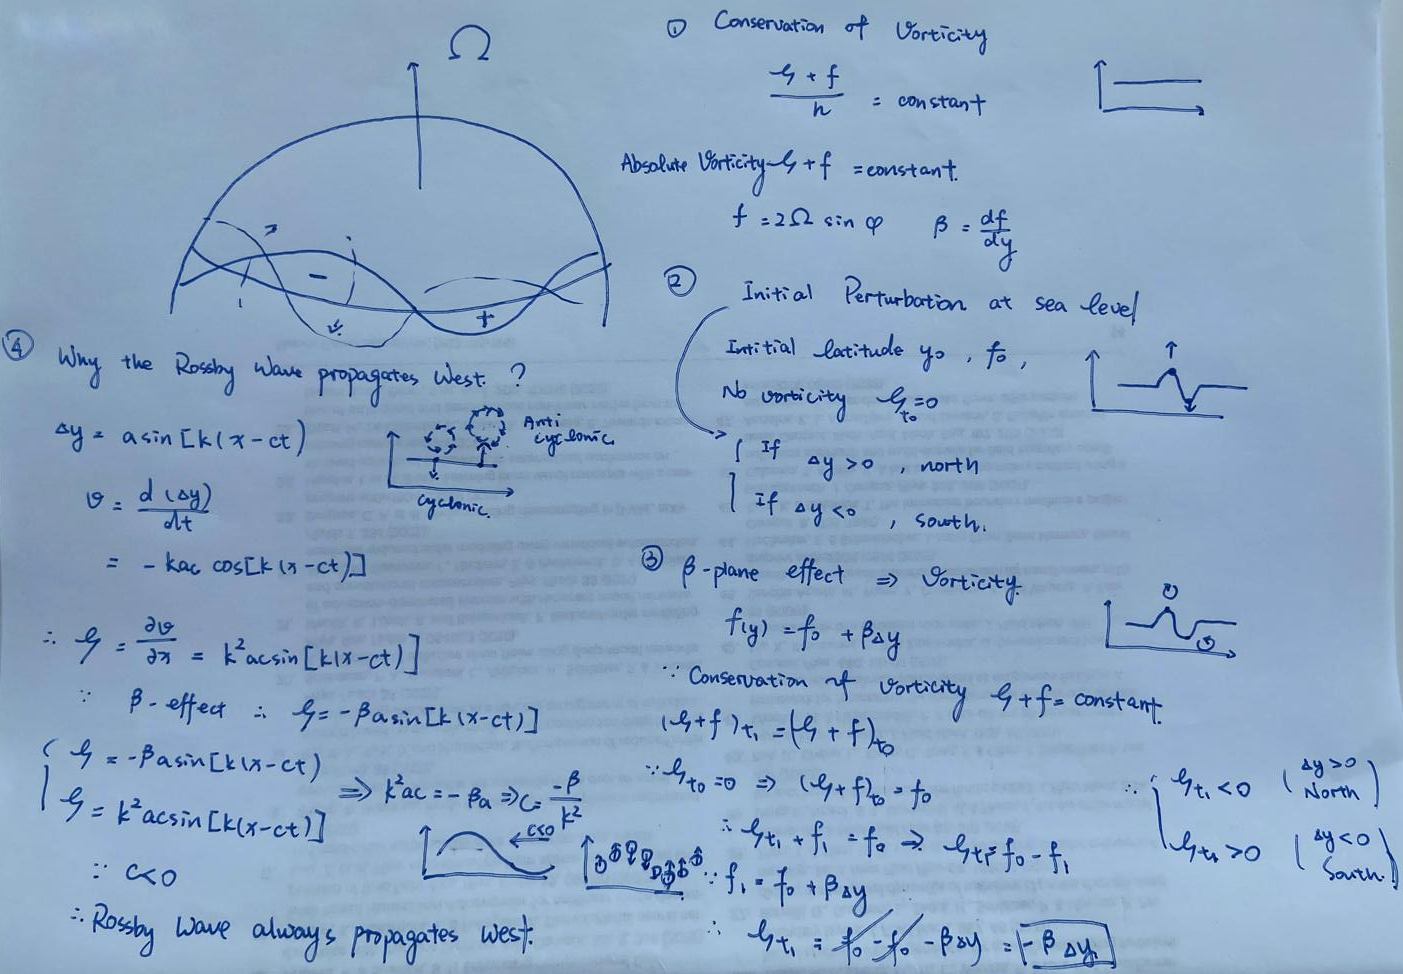 Ω
① Conservation of Vorticity
(ζ + f)/h = constant
Absolute Vorticity ζ + f = constant.
f = 2Ω sin φ   β = df/dy
② Initial Perturbation at sea level
Intitial latitude y₀ , f₀ ,
No vorticity ζ_t₀ = 0
If Δy > 0 , north
If Δy < 0 , south.
③ β-plane effect ⇒ Vorticity.
f(y) = f₀ + βΔy
∵ Conservation of vorticity ζ + f = constant.
(ζ + f)_t₁ = (ζ + f)_t₀
∵ ζ_t₀ = 0 ⇒ (ζ + f)_t₀ = f₀
∴ ζ_t₁ + f₁ = f₀ ⇒ ζ_t₁ = f₀ - f₁
∵ f₁ = f₀ + βΔy
∴ ζ_t₁ = f₀ - f₀ - βΔy = -βΔy
∴ ζ_t₁ < 0 (Δy > 0 North)
ζ_t₁ > 0 (Δy < 0 South.)
-
+
④ Why the Rossby Wave propagates West. ?
Δy = a sin [k(x - ct)
Anti cyclonic.
cyclonic.
v = d(Δy)/dt
= - kac cos[k(x - ct)]
∴ ζ = ∂v/∂x = k²ac sin [k(x - ct)]
∵ β-effect ∴ ζ = -βa sin[k(x - ct)]
ζ = -βa sin[k(x - ct)
ζ = k²ac sin[k(x - ct)]
⇒ k²ac = -βa ⇒ c = -β/k²
c<0
∵ c<0
∴ Rossby Wave always propagates west.